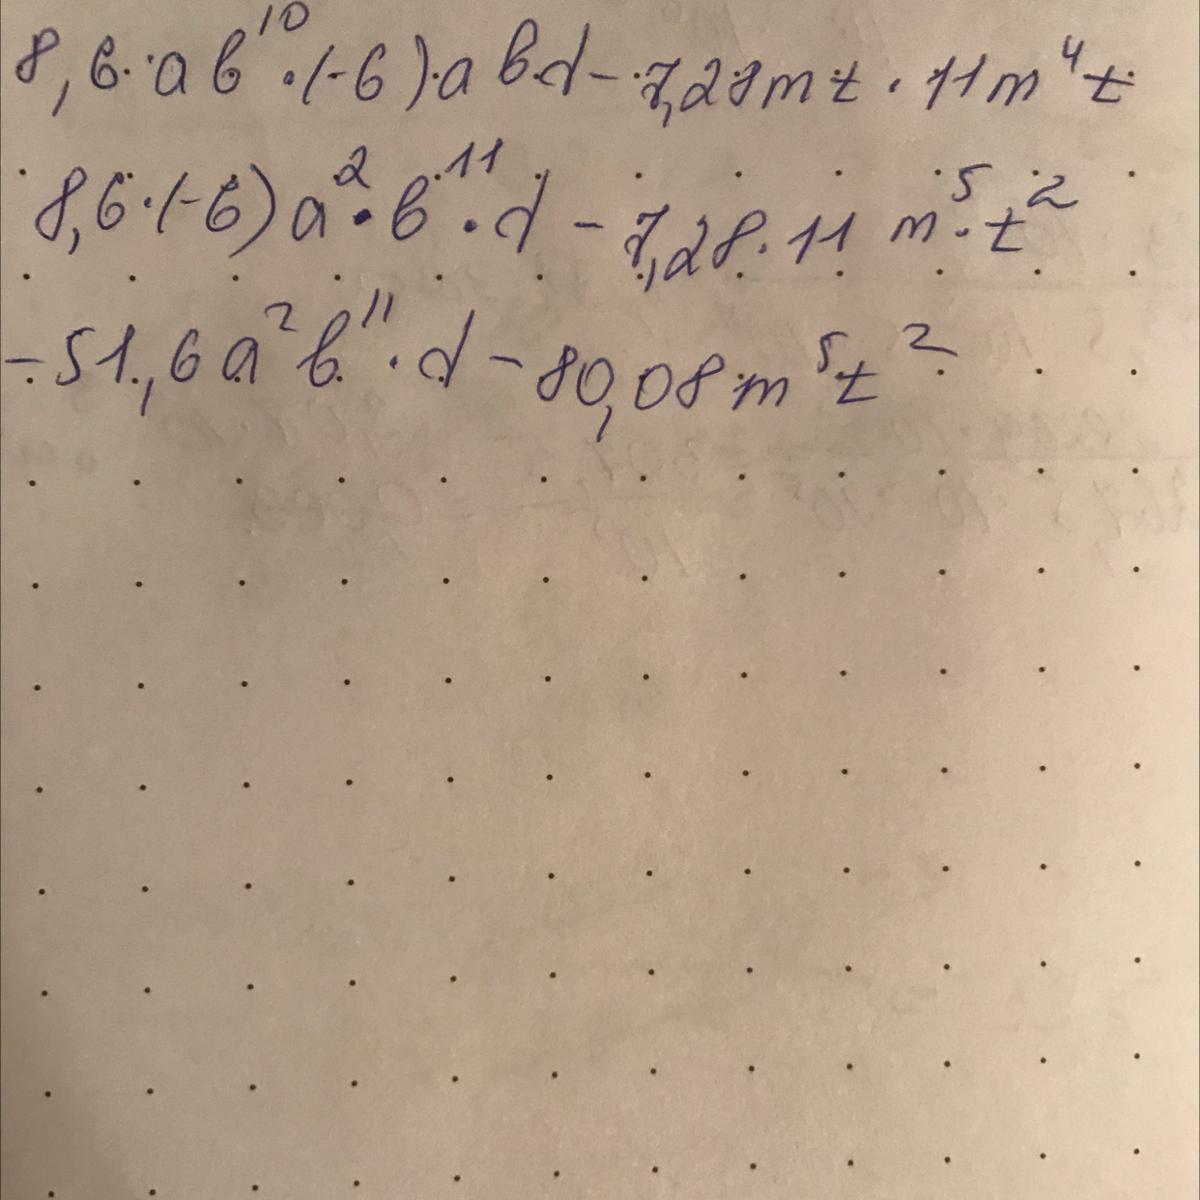 8,6·ab¹⁰·(-6)·abd-7,28mt·11m⁴t
8,6·(-6)a²·b¹¹·d-7,28·11m⁵·t²
-51,6a²b¹¹·d-80,08m⁵t²